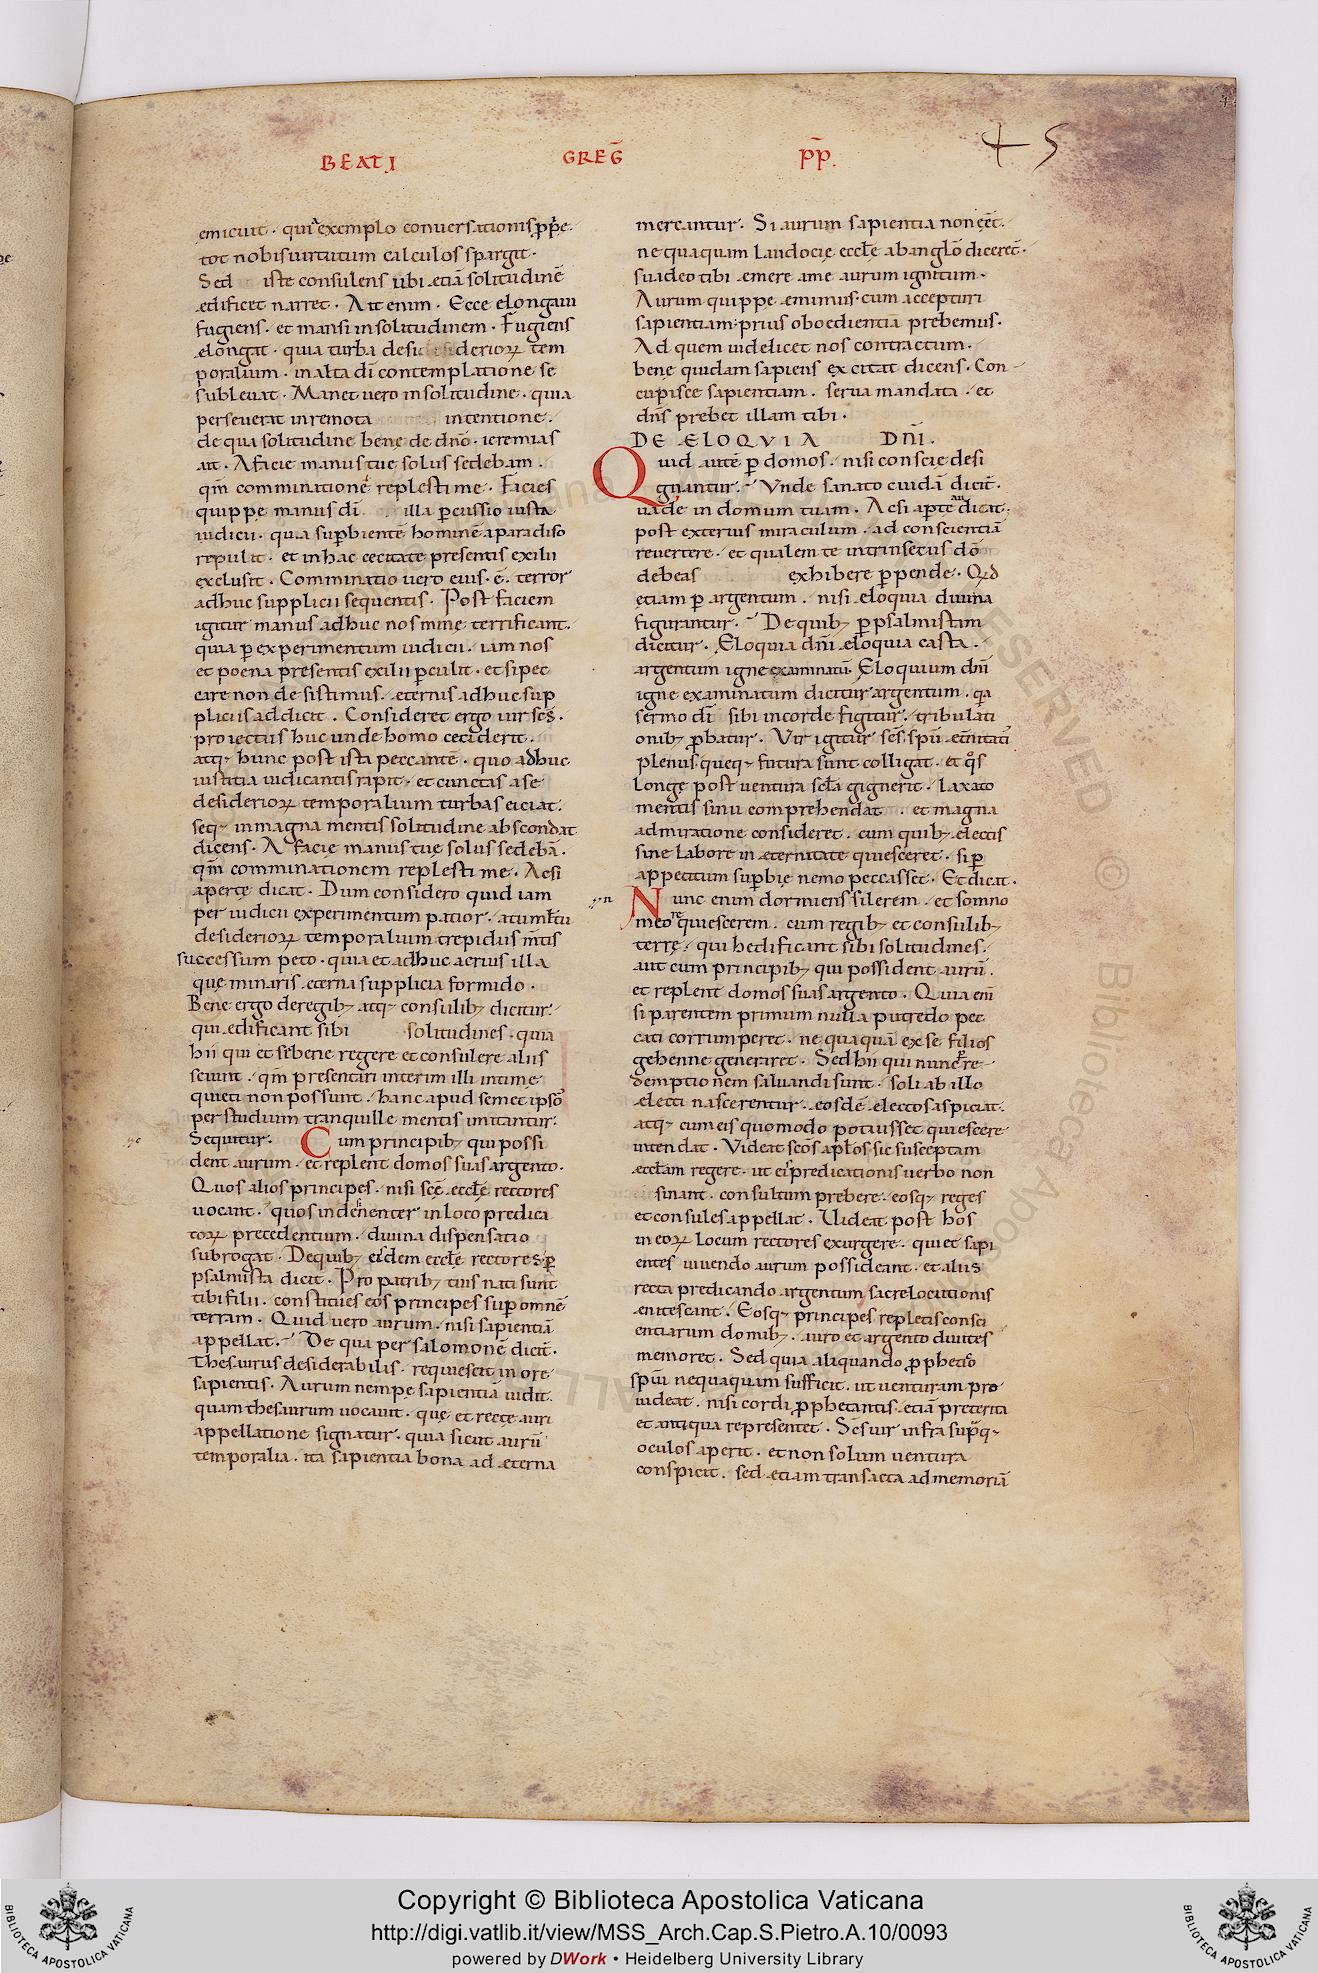 BEATI GREG̅ P̅P.
45
emicuit · quia exemplo conuersationis p̱p̱e ·
tot nobis uirtutum calculos spargit ·
Sed iste consulens ubi etiā solitudinē
edificet narret · Ait enim · Ecce elongaui
fugiens · et mansi in solitudinem · Fugiens
elongat · quia turba desideriorꝝ tem
poralium · in alta dī contemplatione se
subleuat · Manet uero in solitudine · quia
perseuerat in remota intentione ·
de qua solitudine bene de dn̅o · ieremias
ait · A facie manus tuę solus sedebam ·
qm̅ comminatione replesti me · Facies
quippe manus dī illa ꝑcussio iusta
iudicii · qua suꝑbientē hominē a paradiso
repulit · et in hac cecitate presentis exilii
exclusit · Comminatio uero eius · ē · terror
adhuc supplicii sequentis · Post faciem
igitur manus adhuc nos minę terrificant ·
quia ꝑ experimentum iudicii · iam nos
et poena presentis exilii ꝑculit · et si pec
care non desistimus · eternis adhuc sup
pliciis addicit · Consideret ergo uir scs̅ ·
proiectus huc unde homo ceciderit ·
atq; hunc post ista peccantē · quo adhuc
iustitia iudicantis rapit · et cunctas a se
desideriorꝝ temporalium turbas eiciat ·
seq; in magna mentis solitudine abscondat
dicens · A facie manus tuę solus sedebā ·
qm̅ comminationem replesti me · Ac si
aperte dicat · Dum considero quid iam
per iudicii experimentum patior · a tumultu
desideriorꝝ temporalium trepidus m̅tis
successum peto · quia et adhuc acrius illa
quę minaris eterna supplicia formido ·
Bene ergo de regib; atq; consulib; dicitur ·
qui edificant sibi solitudines · quia
hii qui et se bene regere et consulere aliis
sciunt · qm̅ presentari interim illi intime
quieti non possunt · hanc apud semetipsos
per studium tranquille mentis imitantur ·
Sequitur · Cum principib; qui possi
dent aurum · et replent domos suas argento ·
Quos alios principes · nisi scē ecclę rectores
uocant · quos indesinenter in loco predica
torꝝ precedentium · diuina dispensatio
subrogat · De quib; eidem ecclę rectores ꝑ
psalmista dicit · Pro patrib; tuis nati sunt
tibi filii · constitues eos principes suꝑ omnē
terram · Quid uero aurum · nisi sapientiā
appellat · De qua per salomonē dicit̅ ·
Thesaurus desiderabilis · requiescit in ore
sapientis · Aurum nempe sapientiā uidit
quam thesaurum uocauit · quę et recte auri
appellatione signatur · quia sicut aurū
temporalia · ita sapientia bona ad eterna
mercantur · Si aurum sapientia non eēt̅ ·
nequaquam laudocię ecclę ab anglo̅ diceret̅ ·
suadeo tibi emere a me aurum ignitum ·
Aurum quippe emimus · cum accepturi
sapientiam · prius oboedientiā prebemus ·
Ad quem uidelicet nos contractum ·
bene quidam sapiens excitat dicens · Con
cupisce sapientiam · serua mandata · et
dn̅s prebet illam tibi ·
DE ELOQVIA DN̅I ·
Quid autē ꝑ domos · nisi conscię desi
gnantur · Vnde sanato cuidā dicit̅ ·
uade in domum tuam · Ac si aperte audiat ·
post exterius miraculum · ad conscientiā
reuertere · et qualem te intrinsecus dō
debeas exhibere ꝑpende · Qd̅
etiam ꝑ argentum · nisi eloquia diuina
figurantur · De quib; ꝑ psalmistam
dicitur · Eloquia dn̅i eloquia casta ·
argentum igne examinatū · Eloquium dn̅i
igne examinatum dicitur argentum · qa
sermo dī · sibi in corde figitur · tribulati
onib; ꝓbatur · Vir igitur scs̅ spū et̅nitatis
plenus · queq; futura sunt colligat · et qos
longe post uentura secla gignerit · laxato
mentis sinu comprehendat · et magna
admiratione consideret · cum quib; electis
sine labore in eternitate quiesceret · si ꝑ
appetitum suꝑbię nemo peccasset · Et dicat ·
Nunc enim dormiens silerem · et somno
meo requiescerem · cum regib; et consulib;
terrę · qui hedificant sibi solitudines ·
aut cum principib; qui possident aurū ·
et replent domos suas argento · Quia eni̅
si parentem primum nulla putredo pec
cati corrumperet · nequaquā ex se filios
gehenne generaret · Sed hii qui nunc re
demptionem saluandi sunt · soli ab illo
electi nascerentur · eosdē electos aspiciat ·
atq; cum eis quomodo potuisset quiescere
intendat · Videat scōs aplos sic susceptam
ecclam regere · ut ei predicationis uerbo non
sinant · consultum prebere · eosq; reges
et consules appellat · Uideat post hos
in eorꝝ locum rectores exurgere · qui et sapi
entes uiuendo aurum possideant · et aliis
recta predicando argentum sacre locutionis
enitescant · Eosq; principes repletis consci
entiarum domib; · auro et argento diuites
memoret · Sed quia aliquando ꝓphetię
spūi nequaquam sufficit · ut uenturam pro
uideat · nisi cordi ꝓphetantis · etiā preterita
et antiqua representet · Scs̅ uir infra supraq;
oculos aperit · et non solum uentura
conspicit · sed etiam transacta ad memoriā
Copyright © Biblioteca Apostolica Vaticana
http://digi.vatlib.it/view/MSS_Arch.Cap.S.Pietro.A.10/0093
powered by DWork • Heidelberg University Library